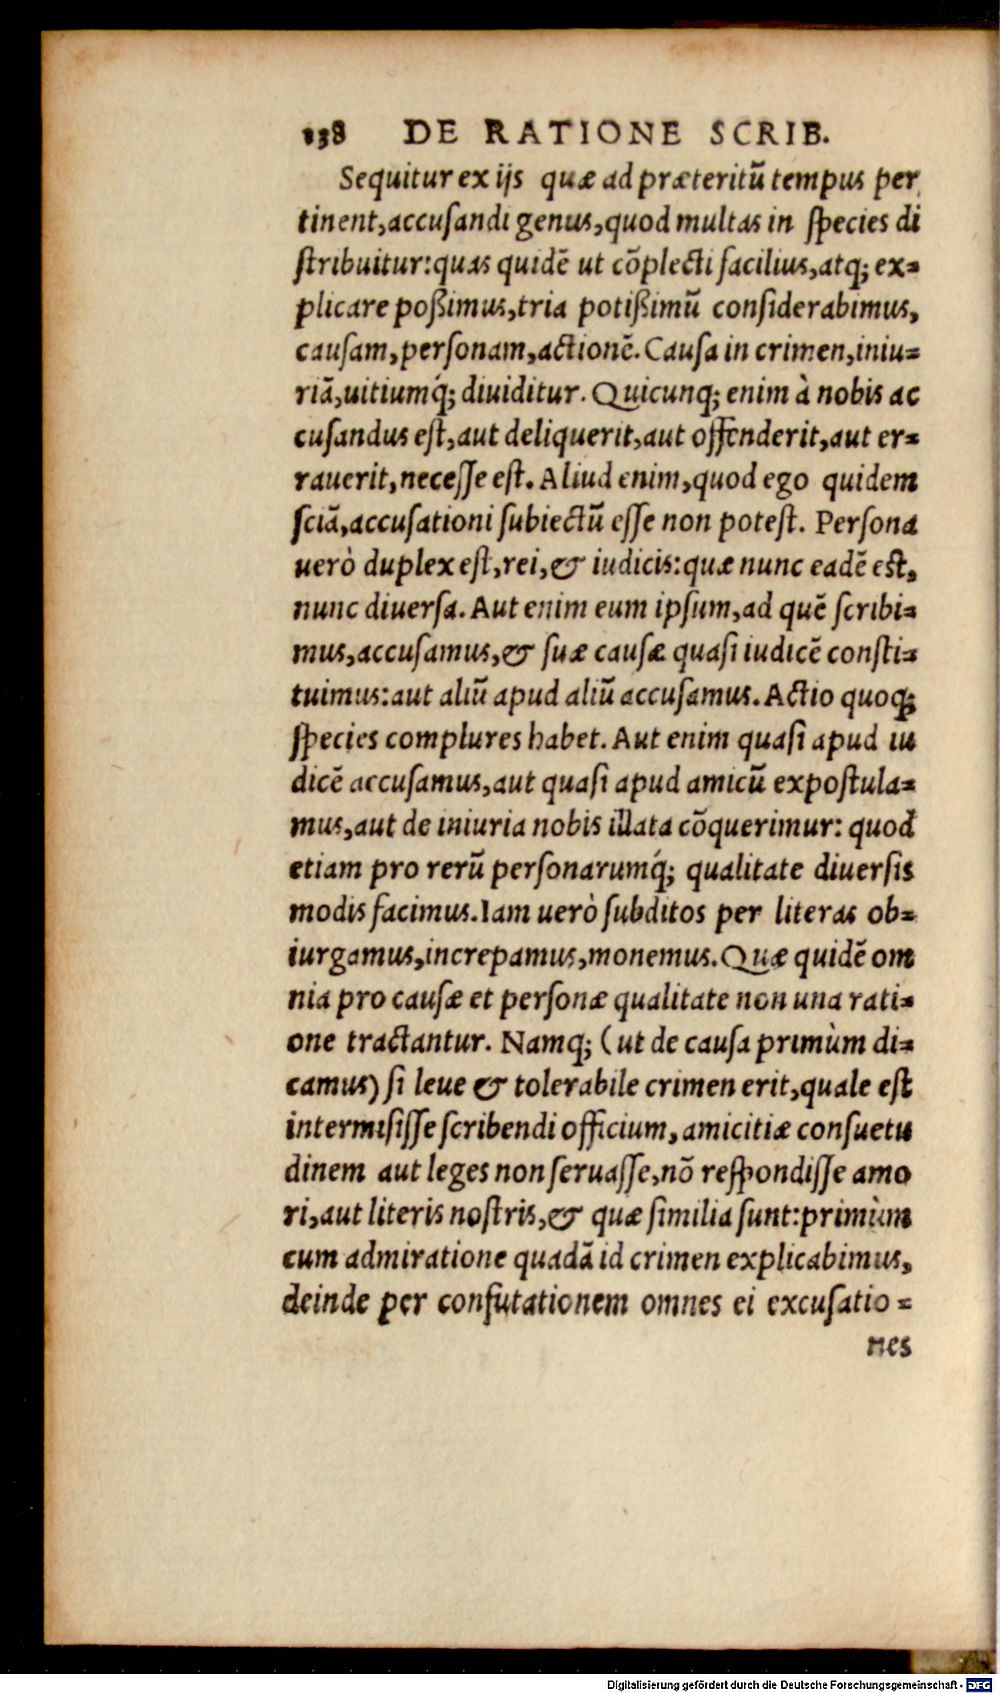 138 DE RATIONE SCRIB.
Sequitur ex ijs quæ ad præteritũ tempus per
tinent, accuſandi genus, quod multas in ſpecies di
ſtribuitur: quas quidẽ ut cõplecti facilius, atq; ex-
plicare poßimus, tria potißimũ conſiderabimus,
cauſam, perſonam, actionẽ. Cauſa in crimen, iniu-
riã, uitiumq́; diuiditur. Quicunq; enim à nobis ac
cuſandus eſt, aut deliquerit, aut offenderit, aut er-
rauerit, neceſſe eſt. Aliud enim, quod ego quidem
ſciã, accuſationi ſubiectũ eſſe non poteſt. Perſona
uerò duplex eſt, rei, & iudicis: quæ nunc eadẽ eſt,
nunc diuerſa. Aut enim eum ipſum, ad quẽ ſcribi-
mus, accuſamus, & ſuæ cauſæ quaſi iudicẽ conſti-
tuimus: aut aliũ apud aliũ accuſamus. Actio quoq;
ſpecies complures habet. Aut enim quaſi apud iu
dicẽ accuſamus, aut quaſi apud amicũ expoſtula-
mus, aut de iniuria nobis illata cõquerimur: quod
etiam pro rerũ perſonarumq́; qualitate diuerſis
modis facimus. Iam uerò ſubditos per literas ob-
iurgamus, increpamus, monemus. Quæ quidẽ om
nia pro cauſæ et perſonæ qualitate non una rati-
one tractantur. Namq; (ut de cauſa primùm di-
camus) ſi leue & tolerabile crimen erit, quale eſt
intermiſiſſe ſcribendi officium, amicitiæ conſuetu
dinem aut leges non ſeruaſſe, nõ reſpondiſſe amo
ri, aut literis noſtris, & quæ ſimilia ſunt: primùm
cum admiratione quadã id crimen explicabimus,
deinde per confutationem omnes ei excuſatio-
nes
Digitalisierung gefördert durch die Deutsche Forschungsgemeinschaft - DFG